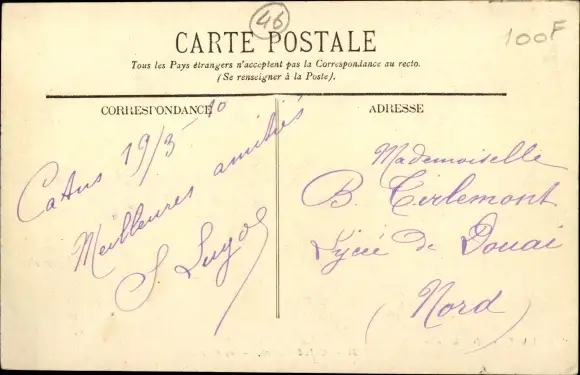 46
100F
CARTE POSTALE
Tous les Pays étrangers n'acceptent pas la Correspondance au recto.
(Se renseigner à la Poste).
CORRESPONDANCE
Catus 19/3-10
Meilleures amitiés
ADRESSE
Mademoiselle
B. Tirlemont
Lycée de Douai
(Nord)